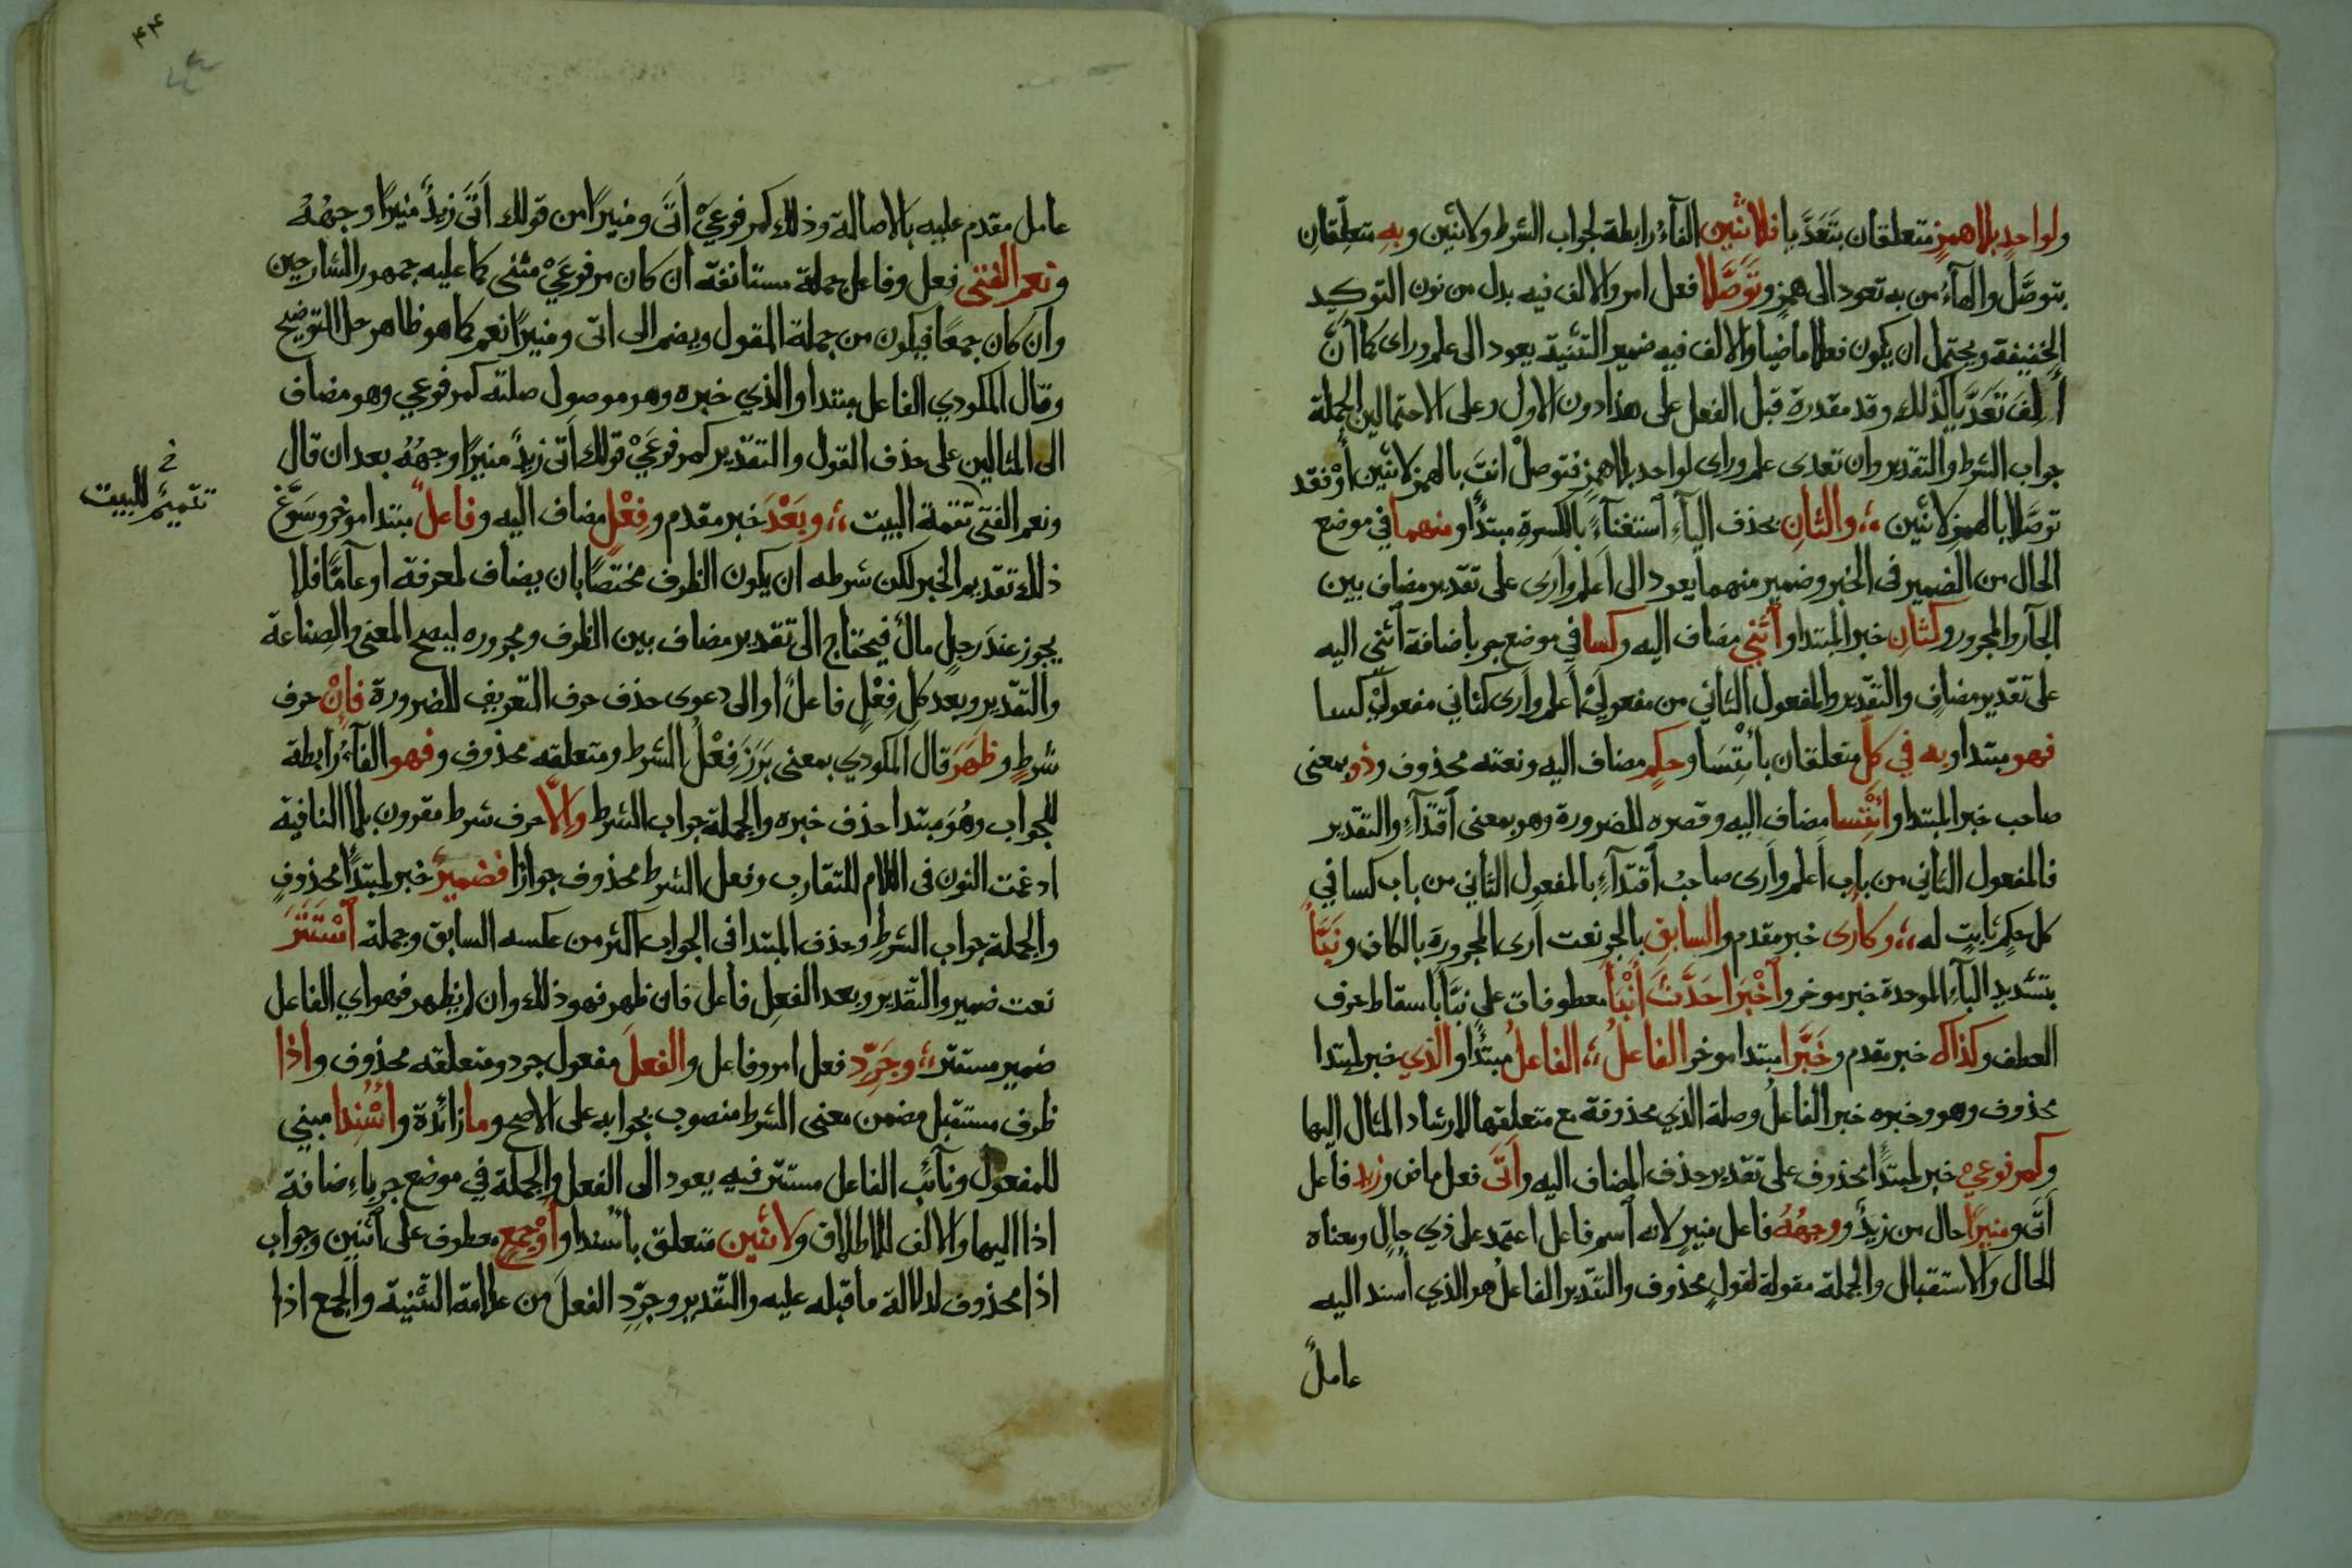 ولواحدٍ بلا همزٍ متعلقان بتَعَدَّيا فلاثنين الفآءُ رابطة لجواب الشرط ولاثنين وبهِ متعلِّقانِ
بتوصَّل والهآءُ من به تعود الى همزٍ وتَوَصَّلا فعل امر والالف فيه بدل من نون التوكيد
الخفيفة ويحتمل ان يكون فعلا ماضيا والالف فيه ضمير التثنية يعود الى علم وراى كما انَّ
أَلِفَ تَعَدَّيا كذلك وقد مقدرة قبل الفعل على هذا دون الاول وعلى الاحتمالين الجملة
جواب الشرط والتقدير وان تعدى علم وراى لواحد بلا همزٍ فتوصلْ انتَ بالهمز لاثنين أوْ فقد
توصَّلا بالهمز لاثنين ؛ والثانِ بحذف اليآءِ استغنآءً بالكسرةِ مبتدأ ومنهما في موضع
الحال من الضمير فى الخبر وضمير منهما يعود الى اَعلم واَرى على تقدير مضاف بين
الجآر والمجرور وكثانِ خبر المبتدا واثني مضاف اليه وكسا في موضع جر باضافة اثنى اليه
على تقدير مضافٍ والتقدير والمفعول الثاني من مفعولَيْ اَعلم واَرى كثاني مفعولَيْ كسا
فهو مبتدا وبه في كلّ متعلقان باْئتِسَا وحكمٍ مضاف اليه ونعته محذوف وذو بمعنى
صاحب خبر المبتدا وائْتِسا مضاف اليه وقصره للضرورة وهو بمعنى اقتدآءٍ والتقدير
فالمفعول الثاني من باب اَعلم واَرى صاحبُ اقتدآءٍ بالمفعول الثاني من باب كسا في
كل حكمٍ ثابتٍ له ؛ وكاَرى خبر مقدم والسابقِ بالجر نعت اَرى المجرورة بالكاف ونَبَّأ
بتشديد البآءِ الموحدة خبر موخر واَخْبَرا حَدَّثَ أَنْبأ معطوفات على نبَّأ باسقاط حرف
العطف وكذاك خبر مقدم وخَبَّرا مبتدا موخر الفاعلُ ؛ الفاعلُ مبتدأ والذي خبر لمبتدا
محذوف وهو وخبره خبر الفاعلُ وصلة الذي محذوفة مع متعلقها لارشاد المثال اليها
وكمرفوعيْ خبر لمبتدأ محذوف على تقدير حذف المضاف اليه واَتَى فعل ماض وزيد فاعل
اَتَى ومنيرًا حال من زيدٌ ووجهُهُ فاعل منيرٍ لانه اسم فاعل اعتمد على ذي حالٍ ومعناه
الحال والاستقبال والجملة مقولة لقولٍ محذوف والتقدير الفاعلُ هو الذي أُسند اليه
عاملٌ
٤٤
عامل مقدم عليه بالاصالة وذلك كمرفوعَيْ اَتَى ومنيرًا من قولك اَتَى زيدٌ منيرًا وجهُهُ
ونعم الفتى فعل وفاعل جملة مستانفة ان كان مرفوعَيْ مثنى كما عليه جمهور الشارحين
وان كان جمعًا فيكون من جملة المقول ويضم الى اتى ومنيرًا نعم كما هو ظاهر حل التوضيح
وقال المكودي الفاعل مبتدا والذي خبره وهو موصول صلته كمرفوعي وهو مضاف
الى المثالين على حذف القول والتقدير كمرفوعَيْ قولك اَتَى زيدٌ منيرًا وجهُهُ بعد ان قال
ونعم الفتى تتمة البيت ؛ وبَعْدَ خبر مقدم وفِعْلٍ مضاف اليه وفاعلٌ مبتدا موخر وسَوَّغ
خ
تتميمٌ للبيت
ذلك تقديم الخبر لكن شرطه ان يكون الظرف مختصًا بان يضاف لمعرفة او عامًّا فلا
يجوز عندَ رجلٍ مالٌ فيحتاج الى تقدير مضاف بين الظرف ومجروره ليصح المعنى والصناعة
والتقدير وبعد كلِ فِعْلٍ فاعلٌ او الى دعوى حذف حرف التعريف للضرورة فاِنْ حرف
شرطٍ وظَهَرَ قال المكودي بمعنى بَرَزَ فِعْلُ الشرط ومتعلقه محذوف وفهو الفآءُ رابطة
للجواب وهُوَ مبتدا حذف خبره والجملة جواب الشرط والَّا حرف شرط مقرون بلا النافية
ادغمت النون فى اللام للتقارب وفعل الشرط محذوف جوازا فضميرٌ خبر لمبتدأ محذوفٍ
والجملة جواب الشرط وحذف المبتدا فى الجواب اكثر من عكسه السابق وجملة اسْتَتَرَ
نعت ضمير والتقدير وبعد الفعل فاعل فان ظهر فهو ذلك وان لم يظهر فهو اي الفاعل
ضمير مستتر ؛ وجَرِّد فعل امر وفاعل والفعلَ مفعول جرد ومتعلقه محذوف واذا
ظرف مستقبل مضمن معنى الشرط منصوب بجوابه على الاصح وما زائدة واُسْنِدا مبني
للمفعول ونآئب الفاعل مستتر فيه يعود الى الفعل والجملة في موضع جر باءضافة
اذا اليها والالف للاطلاق ولاثنين متعلق باُسندا واَوْ جمعٍ معطوف على اثنين وجواب
اذا محذوف لدلالة ما قبله عليه والتقدير وجرِّدِ الفعلَ من علامة التثنية والجمع اذا